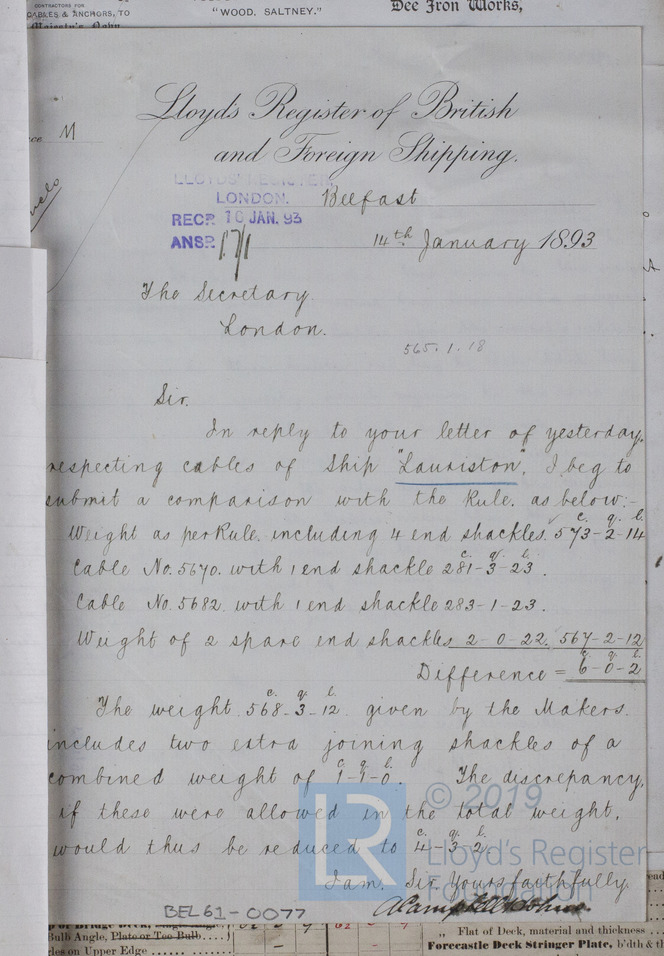 CONTRACTORS FOR
CABLES & ANCHORS, TO
"WOOD, SALTNEY."
Dee Iron Works,
M
Lloyd's Register of British
and Foreign Shipping.
LLOYD'S REGISTER,
LONDON.
Belfast
RECD. 16 JAN. 93
ANSD. 17/1
14th January 1893
The Secretary
London.
565.1.18
Sir.
In reply to your letter of yesterday,
respecting cables of Ship "Lauriston", I beg to
submit a comparison with the Rule. as below:-
Weight as per Rule. including 4 end shackles. c. q. l. 573-2-14
Cable No. 5670. with 1 end shackle c. q. l. 281-3-23.
Cable No. 5682. with 1 end shackle 283-1-23.
Weight of 2 spare end shackles 2-0-22. 567-2-12
Difference = c. q. l. 6-0-2
The weight. c. q. l. 568-3-12. given by the Makers.
includes two extra joining shackles of a
combined weight of c. q. l. 1-1-0. The discrepancy,
if these were allowed in the total weight,
would thus be reduced to c. q. l. 4-3-2.
I am. Sir. Yours faithfully.
© 2019
LR
Lloyd's Register
Foundation
BEL61-0077
Bulb Angle, Plate or Tee Bulb
on Upper Edge
„ Flat of Deck, material and thickness
Forecastle Deck Stringer Plate, b'dth & th